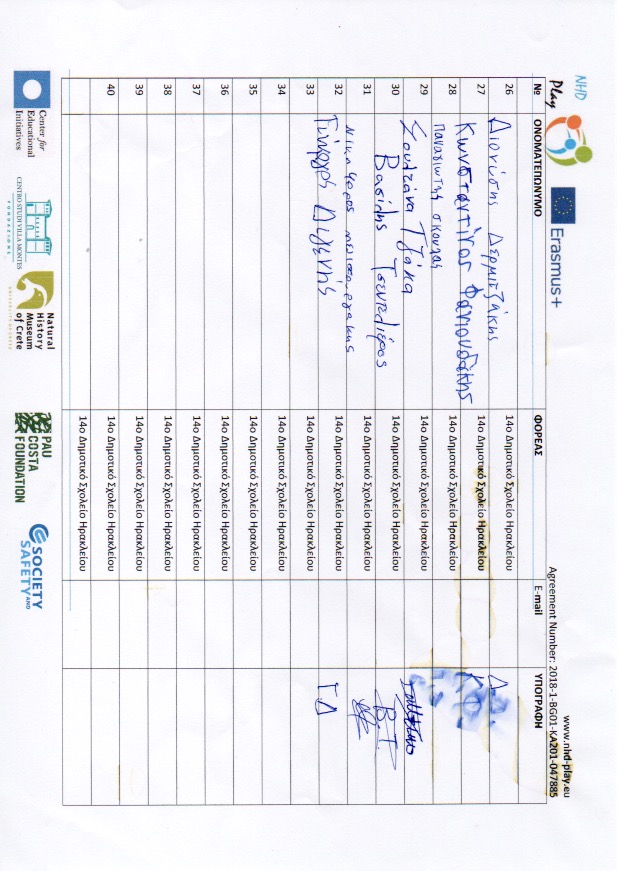 NHD
Play
Erasmus+
www.nhd-play.eu
Agreement Number: 2018-1-BG01-KA201-047885
Νο ΟΝΟΜΑΤΕΠΩΝΥΜΟ ΦΟΡΕΑΣ E-mail ΥΠΟΓΡΑΦΗ
26 Διονύσης Δερμιτζάκης 14ο Δημοτικό Σχολείο Ηρακλείου Δ.Δ.
27 Κωνσταντίνος Φανουδάκης 14ο Δημοτικό Σχολείο Ηρακλείου Κ.Φ.
28 Παναγιωτης σκουλας 14ο Δημοτικό Σχολείο Ηρακλείου
29 Σουλτάνα Τζάκα 14ο Δημοτικό Σχολείο Ηρακλείου
30 Βασίλης 14ο Δημοτικό Σχολείο Ηρακλείου Β.Τ.
31 Νικηφορος 14ο Δημοτικό Σχολείο Ηρακλείου
32 Γιώργος Διγενής 14ο Δημοτικό Σχολείο Ηρακλείου ΓΔ
33 14ο Δημοτικό Σχολείο Ηρακλείου
34 14ο Δημοτικό Σχολείο Ηρακλείου
35 14ο Δημοτικό Σχολείο Ηρακλείου
36 14ο Δημοτικό Σχολείο Ηρακλείου
37 14ο Δημοτικό Σχολείο Ηρακλείου
38 14ο Δημοτικό Σχολείο Ηρακλείου
39 14ο Δημοτικό Σχολείο Ηρακλείου
40 14ο Δημοτικό Σχολείο Ηρακλείου
Center for
Educational
Initiatives
CENTRO STUDI VILLA MONTES
FONDAZIONE
Natural
History
Museum
of Crete
UNIVERSITY OF CRETE
PAU
COSTA
FOUNDATION
SOCIETY
AND
SAFETY